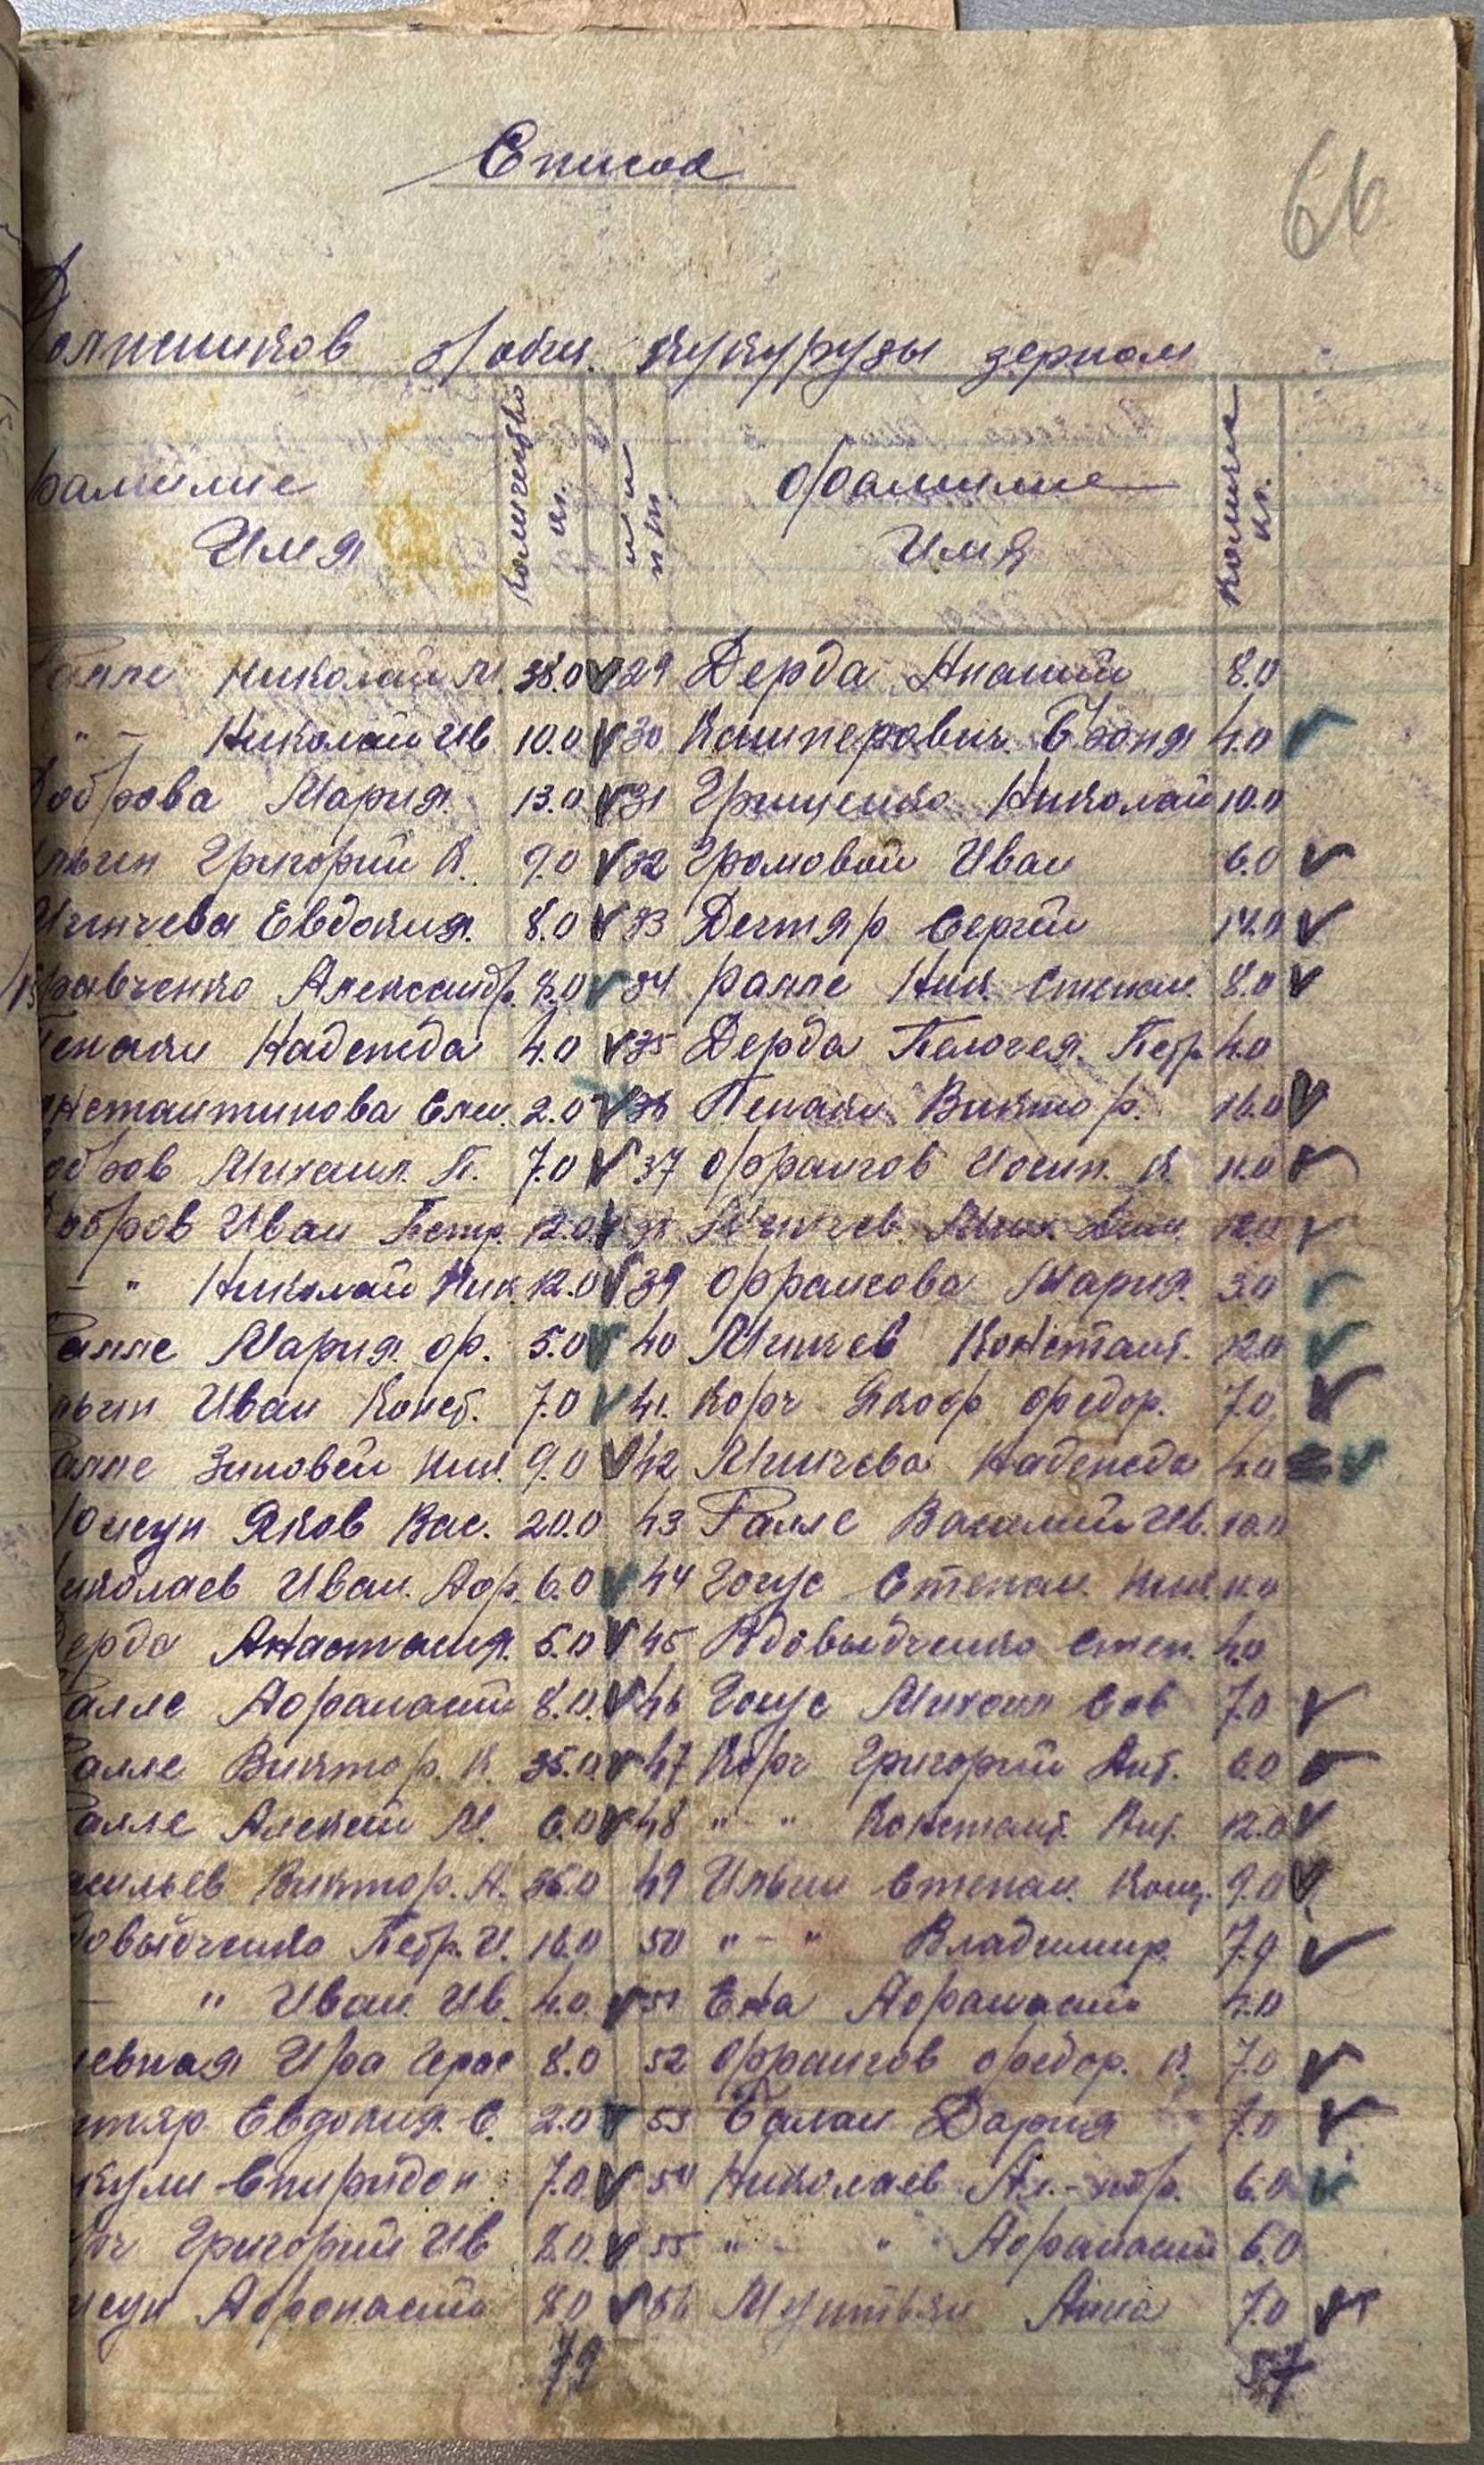 Список
66
Должников об/общ. кукурузы зерном
фамилие Имя количество кг. № № п п фамилие Имя количе кг.
Ралле Николай М. 38.0 29 Дерда Ананий 8.0
" - Николай Ив 10.0 30 4.0
Добрава Мария. 13.0 31 Грищенко Николай 10.0
льин Григорий К. 9.0 32 Громовой Иван 6.0
Минчева Евдокия. 8.0 33 Дегтяр Сергей
Кравченко Александр. 8.0 34 Ралле Ник. Степан. 8.0
Пенаки Надежда 4.0 35 Дерда Пелагея. Петр. 4.0
нстантинова Елен. 2.0 36 Пенаки Виктор. 16.0
обров Михаил. П. 7.0 37 Офрангов Иосип. К. 11.0
Добров Иван Петр. 12.0 38 Минчев. 12.0
- " Николай Ник. 12.0 39 Офрангова Мария. 3.0
Ралле Мария. Ф. 5.0 40 Минчев Констант. 12.0
льин Иван Конст. 7.0 41. Корч Якоф Федор. 7.0
Ралле Зиновей Ник. 9.0 42 Минчева Надежда 4.0
Яков Вас. 20.0 43 Ралле Василий Ив. 10.0
Николаев Иван. Аф. 6.0 44 Гогус Степан. Ник. 11.0
Дерда Анастасия. 5.0 45 Вдовыдченко Степ. 4.0
Ралле Афанасий 8.0. 46 Гогус Михаил Сав 7.0
Ралле Виктор. К. 35.0. 47 Корч Григорий Ант. 6.0
Ралле Алексей М. 6.0 48 " - " Констант. Ант. 12.0
асильев Виктор. А. 36.0 49 Ильин Степан. Конд. 9.0
довыдченко Петр. И. 16.0 50 " - " Владимир. 7.0
- " Иван. Ив. 4.0. 51 Ена Афанасий
левная Ира Герас 8.0 52 Офрангов Федор. К. 7.0
гтяр. Евдокия. С. 2.0 53 Балан Дария 7.0
кули Спиридон 7.0. 54 Николаев 6.0
рч Григорий Ив 8.0. 55 " " Афанасий 6.0
нсун Афонасий 8.0 56 Мунтьян Анна 7.0
79 57